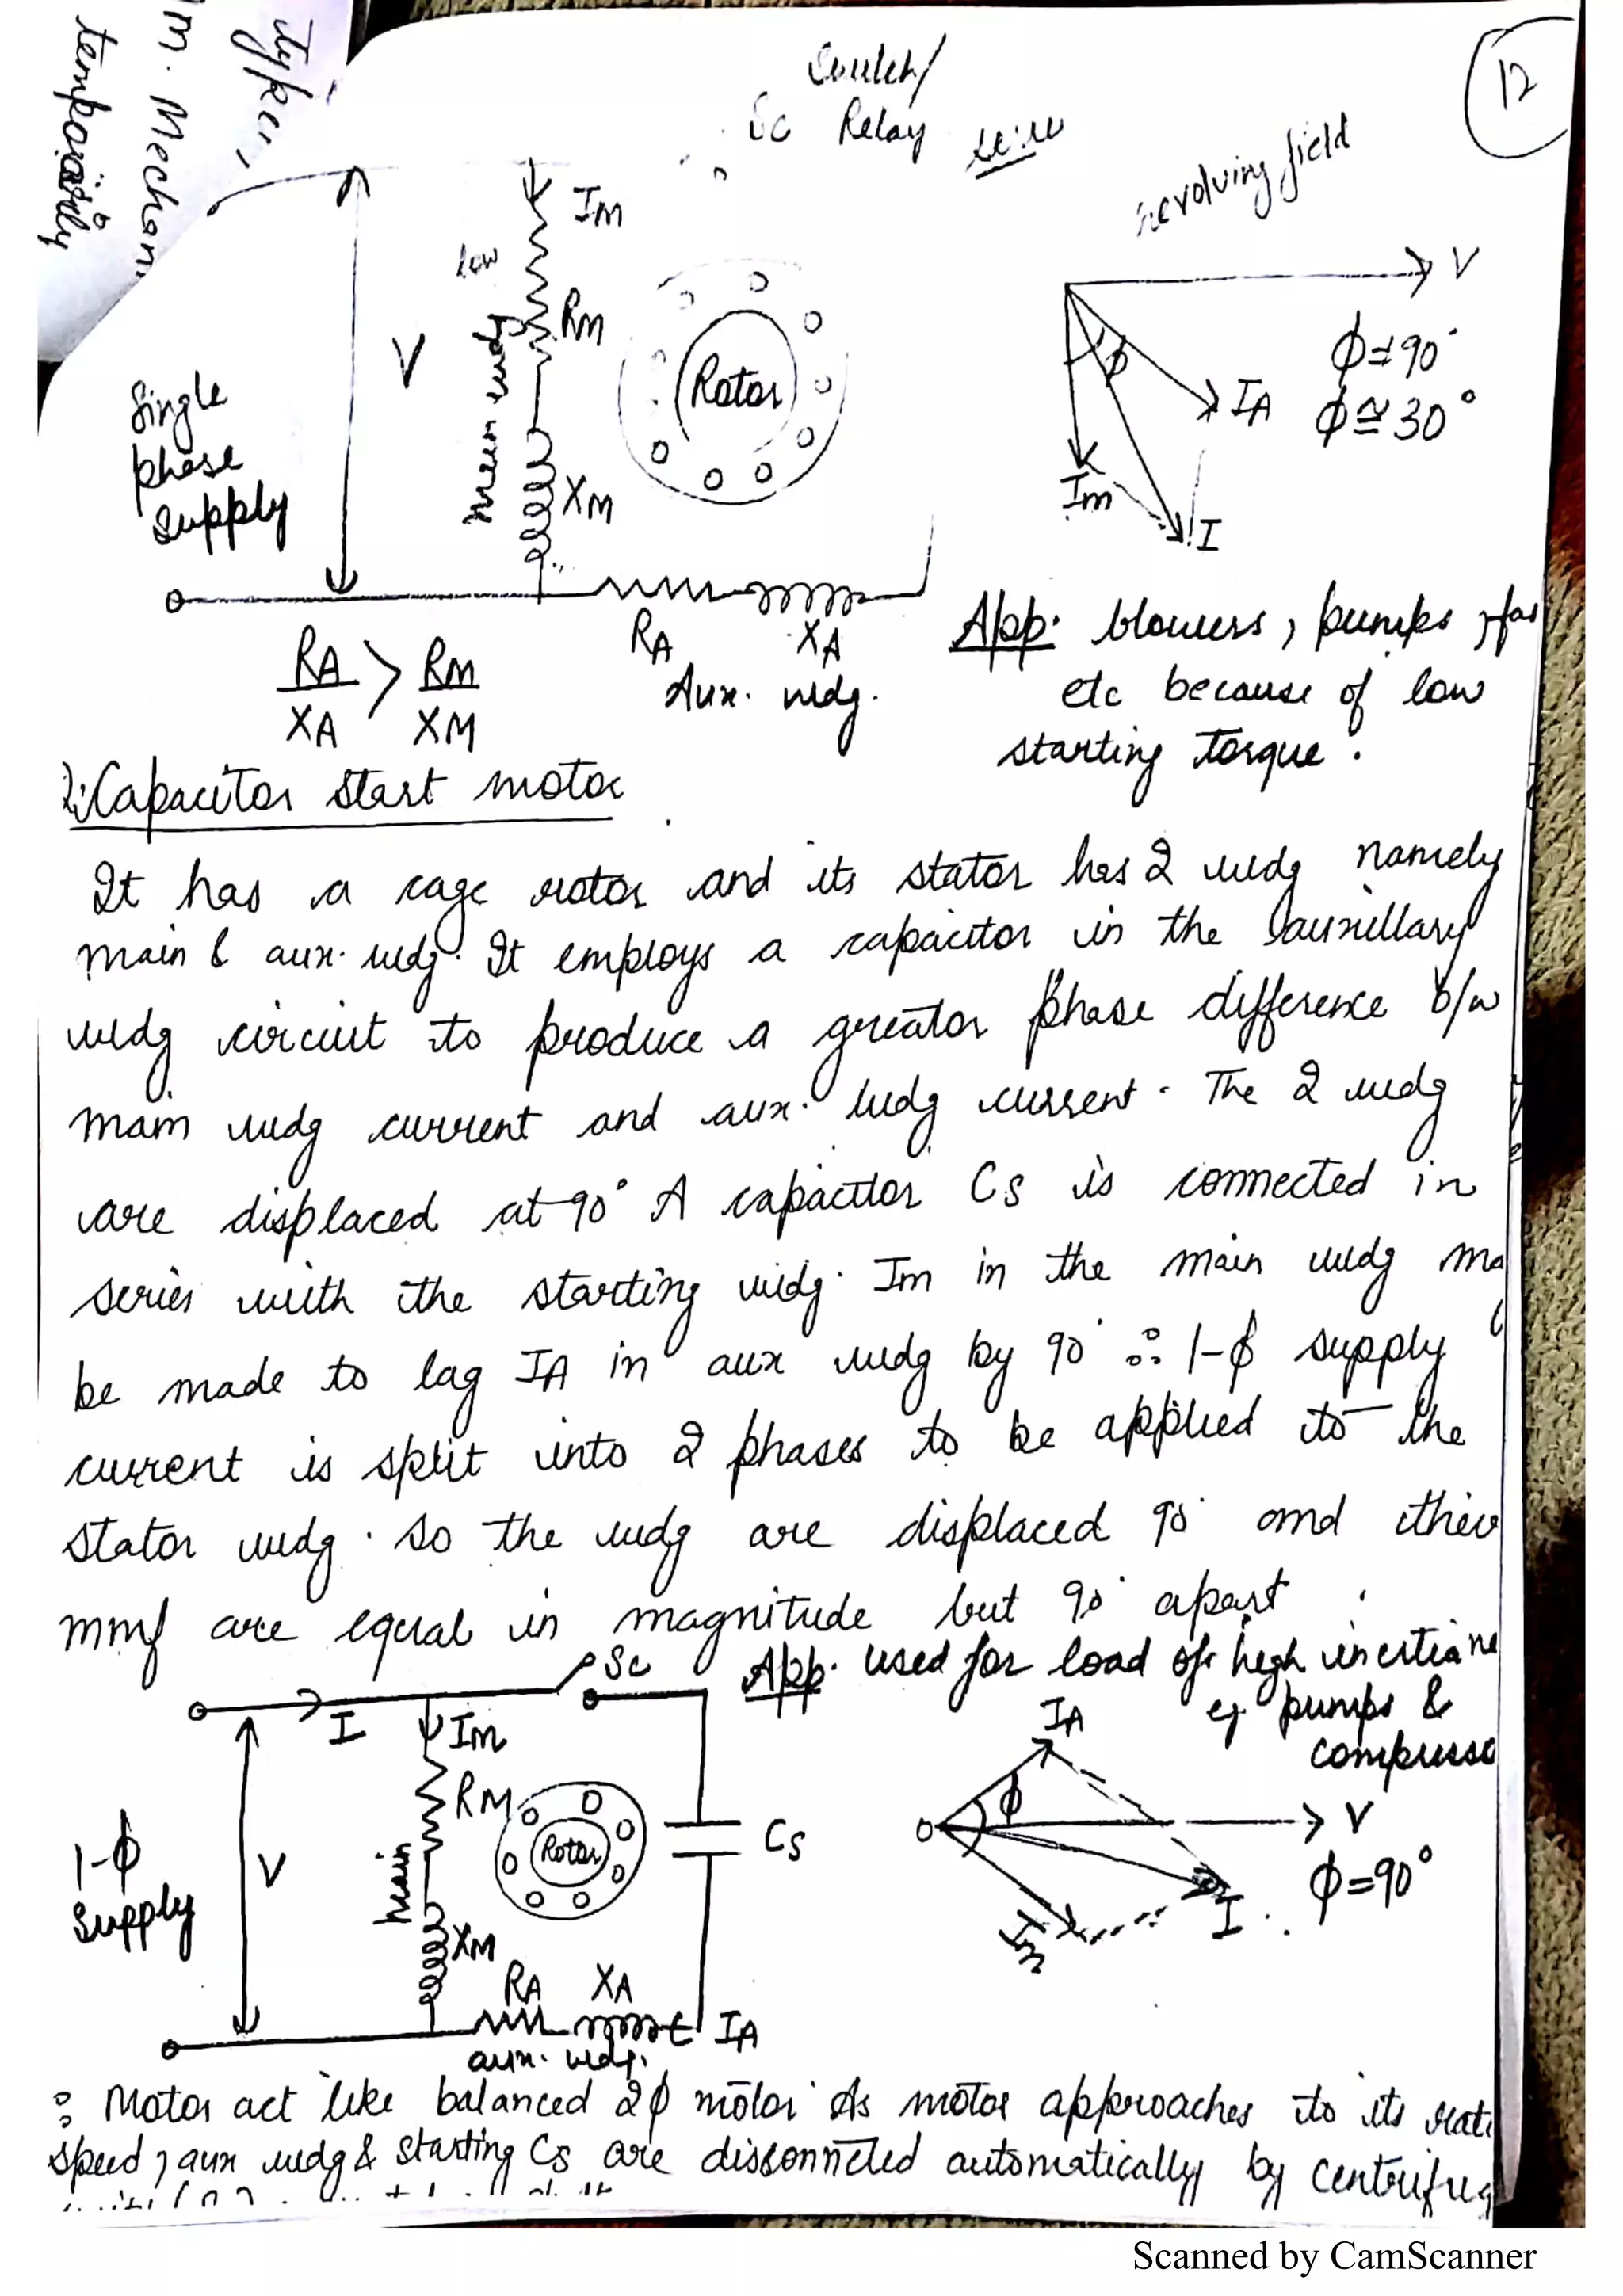 types,
m. Mechan
temporarily
12
Sc Relay
revolving field
IM
low
RM
Main wdg
XM
V
Rotor
Single
phase
supply
V
ϕ≠90°
ϕ≅30°
ϕ
IA
Im
I
RA XA
Aux. wdg.
RA/XA > RM/XM
App: blowers, pumps, fan
etc because of low
starting torque.
2. Capacitor start motor
It has a cage rotor and its stator has 2 wdg namely
main & aux. wdg. It employs a capacitor in the auxillary
wdg circuit to produce a greater phase difference b/w
main wdg current and aux. wdg current. The 2 wdg
are displaced at 90° A capacitor Cs is connected in
series with the starting wdg. Im in the main wdg ma
be made to lag IA in aux wdg by 90° ∴ 1-ϕ supply
current is split into 2 phases to be applied to the
stator wdg. So the wdg are displaced 90° and their
mmf are equal in magnitude but 90° apart.
App. used for load of high inertia
eg pumps &
compresso
Sc
I
IM
RM
Main
XM
Rotor
Cs
1-ϕ
supply
V
RA XA
IA
aux. wdg.
IA
ϕ
O
V
ϕ=90°
Im
I
∴ Motor act like balanced 2ϕ motor. As motor approaches to its rat
speed, aux wdg & starting Cs are disconnected automatically by centrifug
Scanned by CamScanner